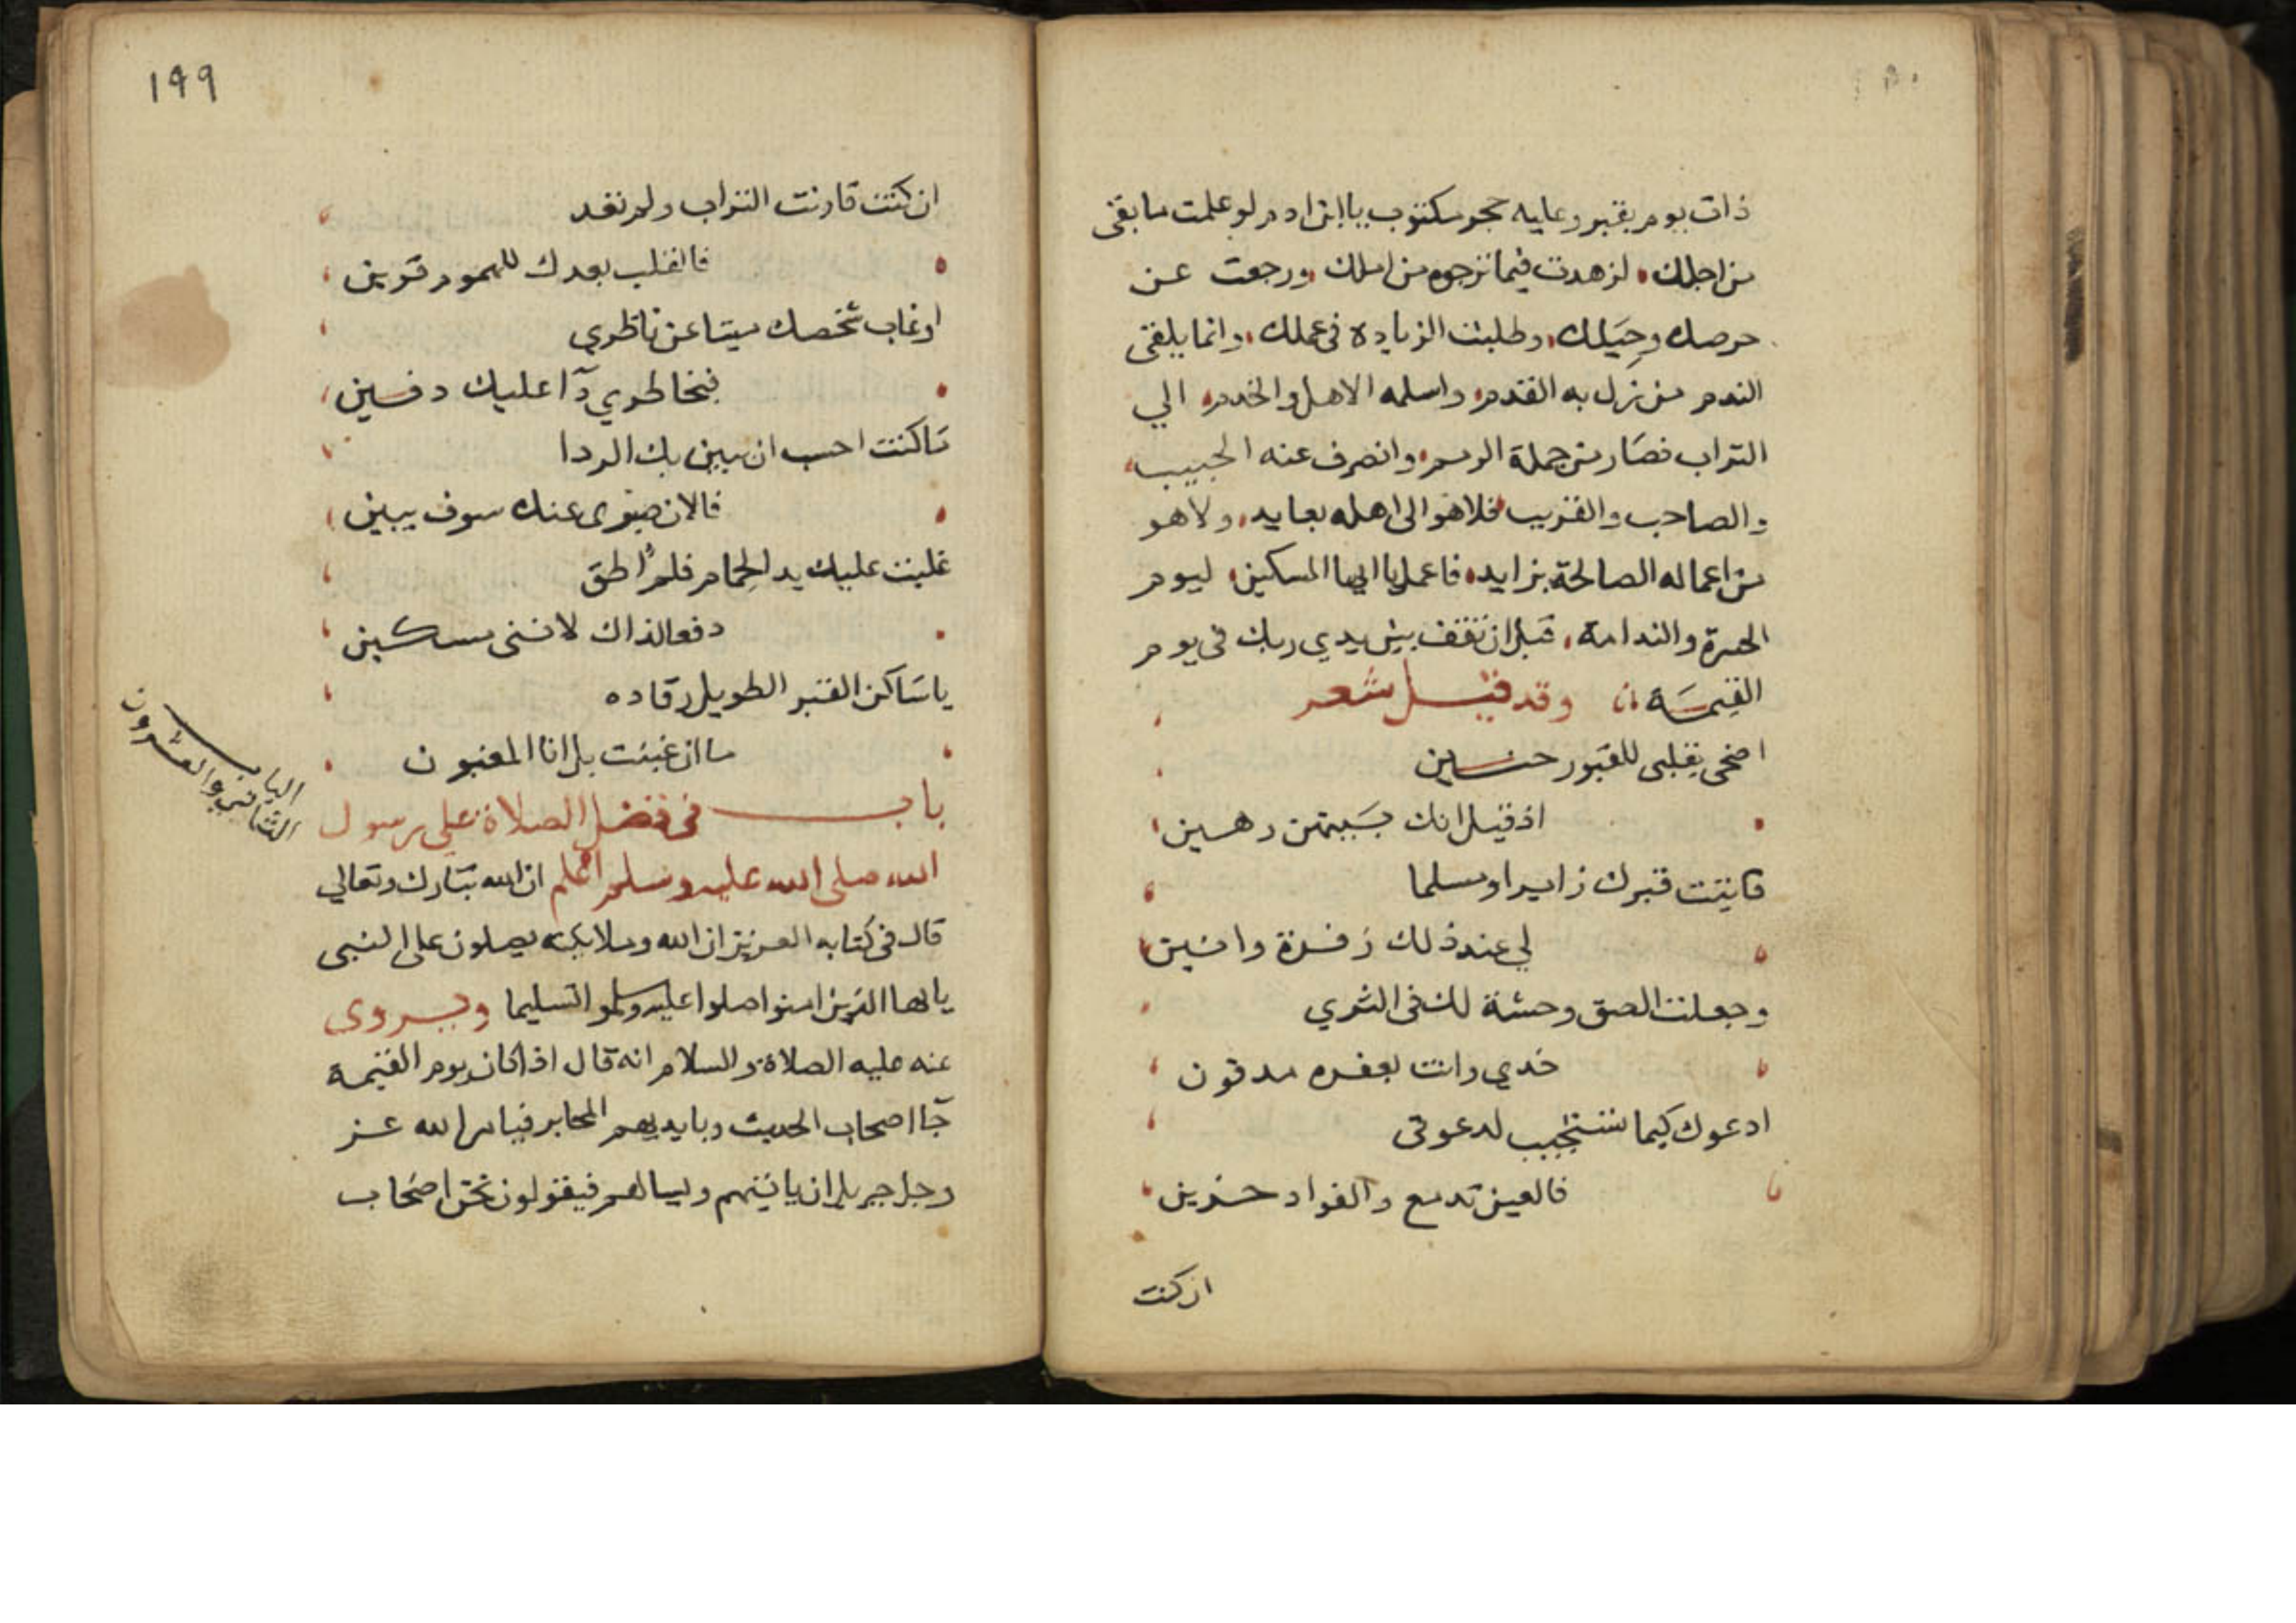 ذات يوم بقبر وعليه حجر مكتوب يا ابن ادم لو علمت ما بقى
من اجلك، لزهدت فيما ترجوه من املك، ورجعت عن
حرصك وحِيَلك، وطلبت الزيادة فى عملك، وانما يلقى
الندم من نزل به القدم، واسلمه الاهل والخدم، الي
التراب فصار من جملة الرمم، وانصرف عنه الحبيب،
والصاحب والقريب، فلا هو الى اهله بعايد، ولا هو
من اعماله الصالحة بزايد، فاعمل يا ايها المسكين، ليوم
الحسرة والندامة، قبل ان تقف بين يدي ربك فى يوم
القيمة وقد قيل شعر
اضحى بقلبى للقبور حنين
اذ قيل انك بينهن رهين
فاتيت قبرك زايرا ومسلما
لي عند ذلك زفرة وانين
وجعلت الصق وحشة لك فى الثري
خدي وانت بعفره مدفون
ادعوك كيما تستجيب لدعوتى
فالعين تدمع والفواد حزين
ان كنت
١٩٩
ان كنت قارنت التراب ولم تعد
فالقلب بعدك للهموم قرين
او غاب شخصك ميتا عن ناظري
فبخاطري دآ عليك دفين
ما كنت احسب ان يبين بك الردا
فالان صبرى عنك سوف يبين
غلبت عليك يد الحِمام فلم اُطق
دفعا لذاك لاننى مسكين
يا ساكن القبر الطويل رقاده
ما ان غبنت بل انا المغبون
باب فى فضل الصلاة على رسول
الله صلى الله عليه وسلم اعلم ان الله تبارك وتعالي
قال فى كتابه العزيز ان الله وملايكته يصلون على النبى
يا ايها الذين امنوا صلوا عليه وسلموا تسليما ويروى
عنه عليه الصلاة والسلام انه قال اذا كان يوم القيمة
جآ اصحاب الحديث وبايديهم المحابر فيامر الله عز
وجل جبريل ان ياتيهم ويسالهم فيقولون نحن اصحاب
الباب
الثانى والعشرون